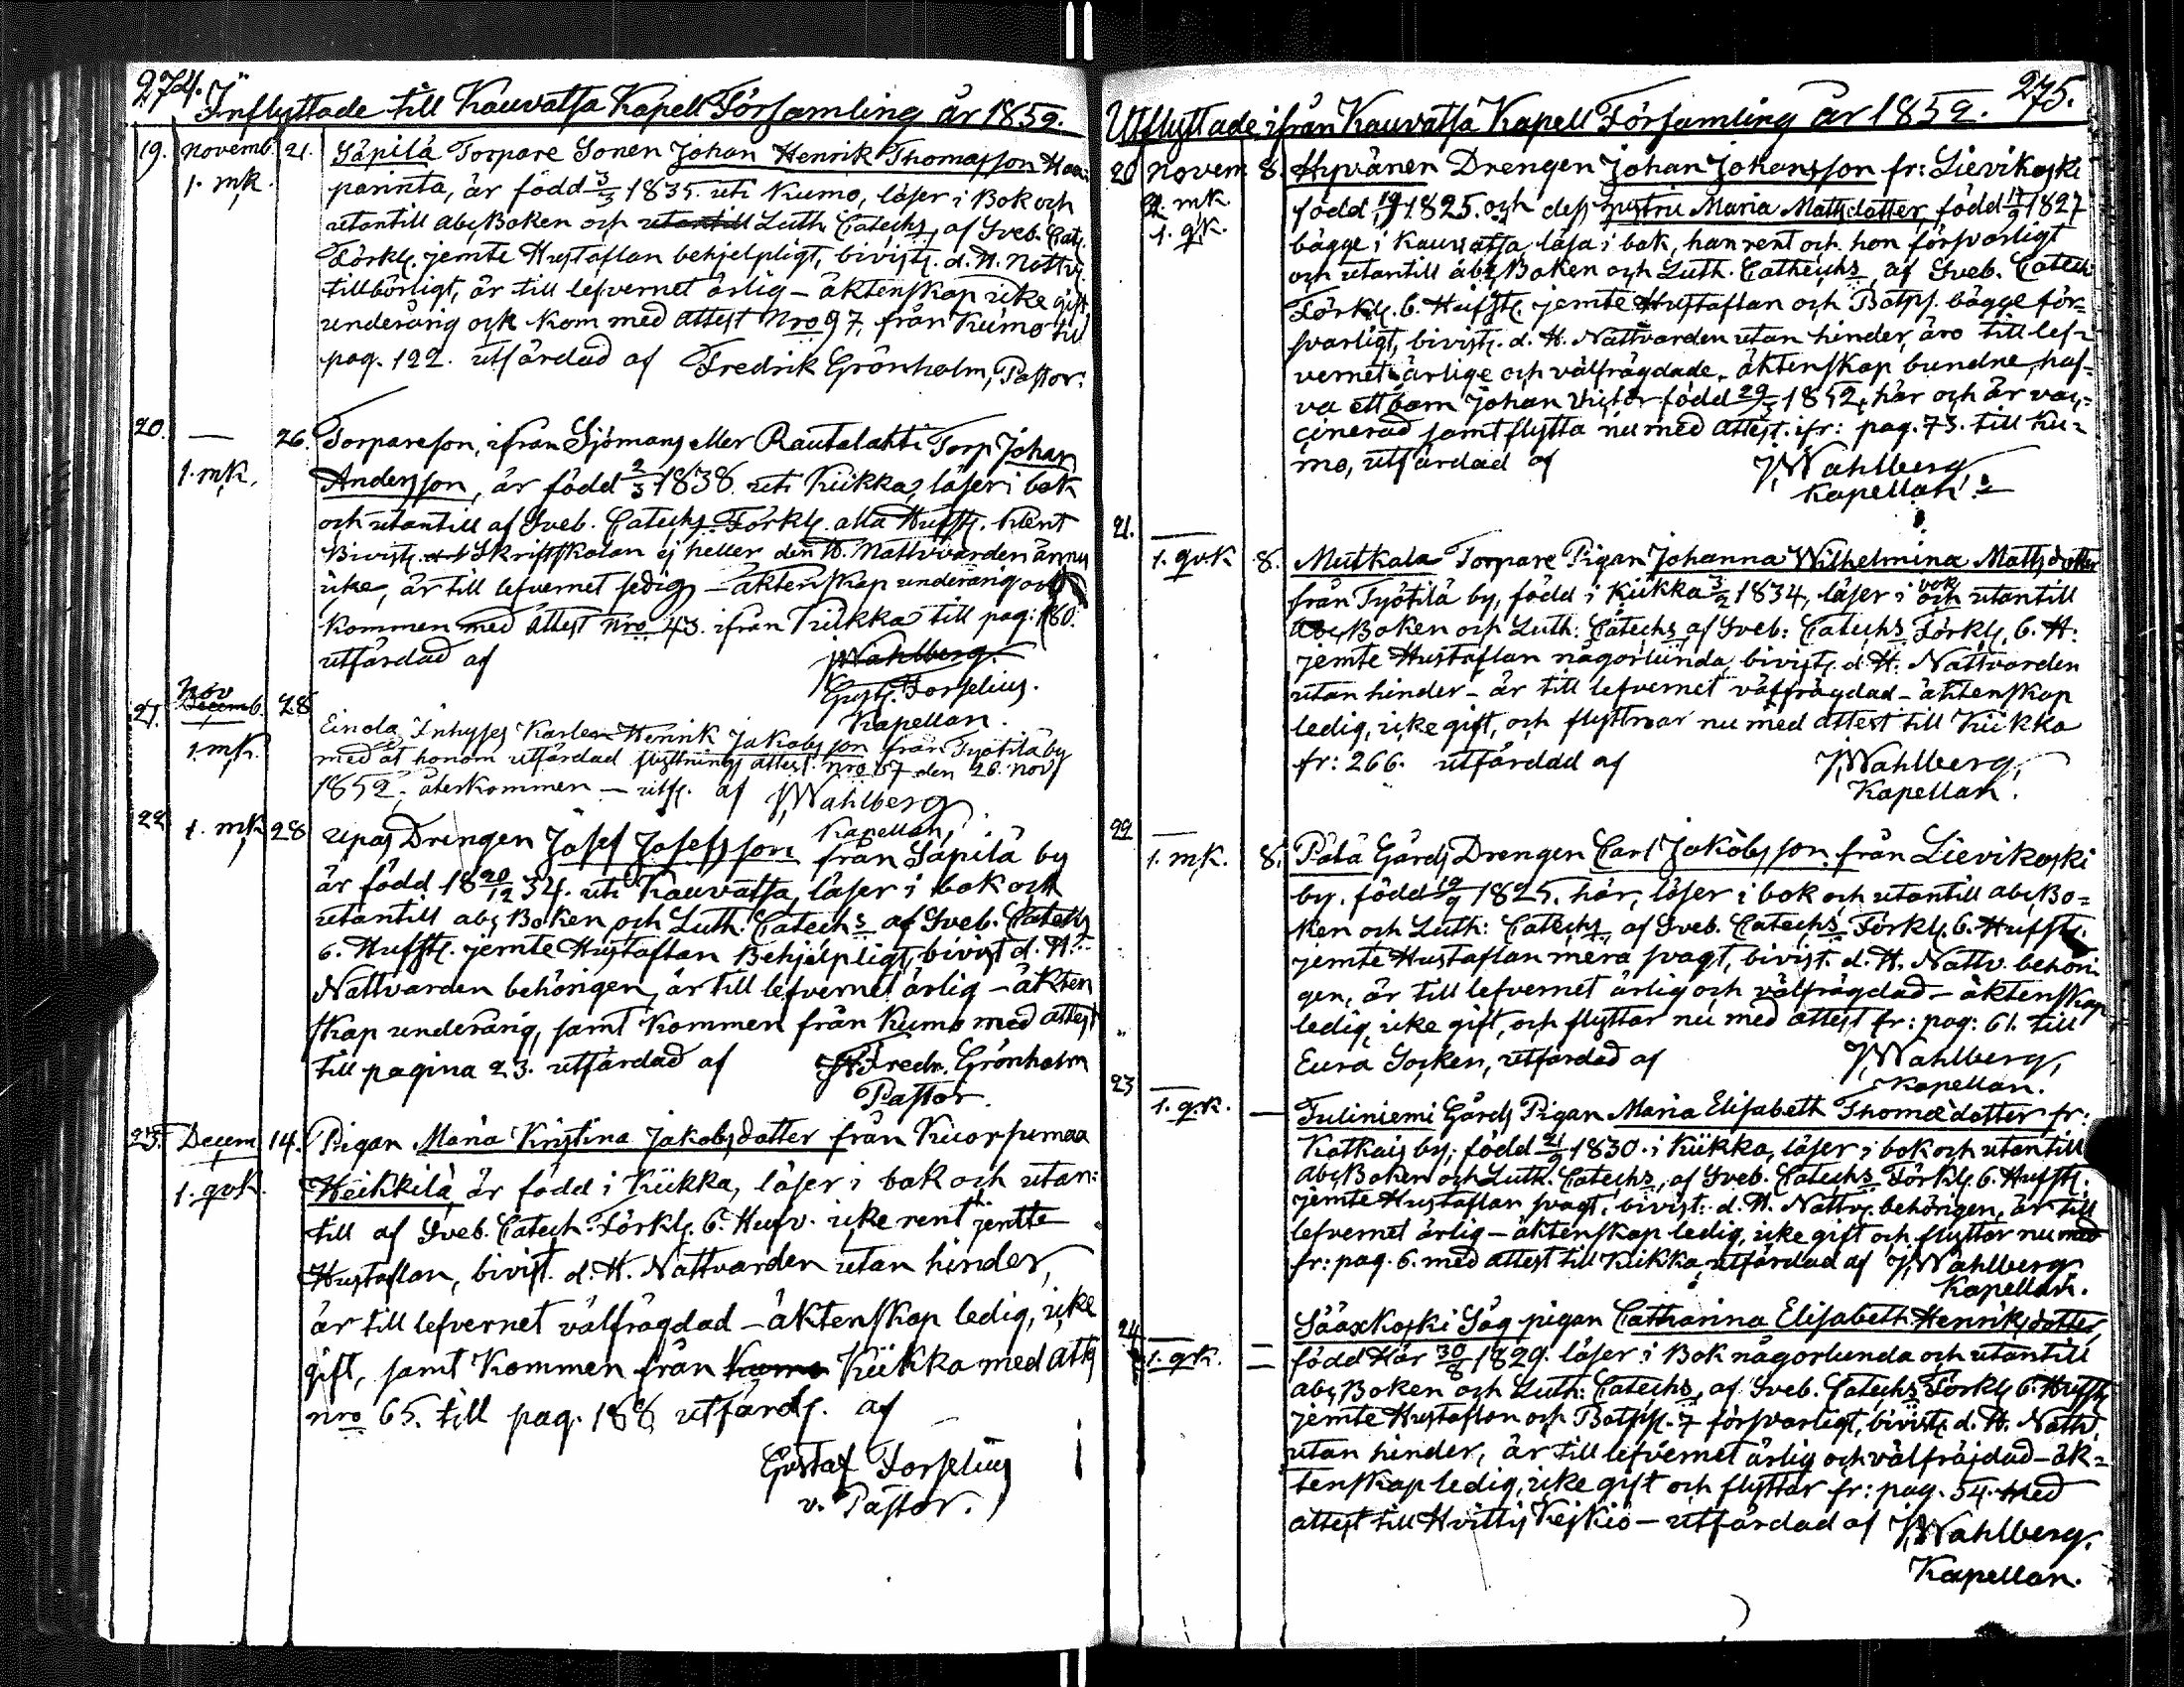 274.
Inflyttade till Kauvatsa Kapell Församling år 1852.
19. Novemb. 21. Säpilä Torpare Sonen Johan Henrik Thomasson Haa-
1. mk. parinta, är född 3/3 1835. uti Kumo, läser i Bok och
utantill abc Boken och utantill Luth. Catechs, af Sveb. Cat.
Förkl. jemte Hustaflan behjelpligt, bivist. d. H. Nattv.
tillbörligt, är till lefvernet ärlig – äktenskap icke gift
underårig och kom med attest Nro 97. från Kumo till
pag. 122. utfärdad af Fredrik Grönholm, Pastor.
20. — 26. Torpareson, ifrån Sjömans eller Rautalahti Torp Johan
1. mk. Andersson, är född 2/3 1838. uti Kiikka, läser i bok
och utantill af Sveb. Catechs Förkl. alla Hufst. Rent
Bivist. Skriftskolan ej heller den H. Nattvarden ännu
icke, är till lefvernet sedig – äktenskap underårig och
kommen med Attest nro 43. ifrån Kiikka till pag: 180.
utfärdad af JWahlberg.
Gust. Forselius.
Kapellan.
21. Nov Decemb. 28 Einola Inhyses Karlen Henrik Jakobsson från Työtilä by
1. mk. med åt honom utfärdad flyttnings attest nro 57 den 26. nov
1852. återkommen – utf. af JWahlberg
Kapellan,
22 1. mk 28 Repas Drengen Josef Josefsson från Säpilä by
är född 18 20/12 34. uti Kauvatsa, läser i bok och
utantill abc Boken och Luth. Catechs af Sveb. Catechs
6. Hufst. jemte Hustaflan Behjelpligt, bivist d. H.
Nattvarden behörigen, är till lefvernet ärlig – äkten
skap underårig, samt kommen från Kumo med attest
till pagina 23. utfärdad af Fredr. Grönholm
Pastor.
23. Decem. 14. Pigan Maria Kristina Jakobsdotter från Kuorsumaa
1. qvk. Heikkilä är född i Kiikka, läser i bok och utan-
till af Sveb. Catech. Förkl. 6. Hufv. icke rent jemte
Hustaflan, bivist. d. H. Nattvarden utan hinder,
är till lefvernet välfrägdad – äktenskap ledig, icke
gift, samt kommen från Kumo Kiikka med att
nro 65. till pag. 188 utfärd. af
Gustaf Forselius
v. Pastor.
275.
Utflyttade ifrån Kauvatsa Kapell Församling år 1852.
20 Novem. 8. Hyvänen Drengen Johan Johansson fr: Lievikoski
1. mk. född 19/9 1825. och dess hustru Maria Mattsdotter, född 17/9 1827
1. qk. bägge i Kauvatsa läsa i bok, han rent och hon försvarligt
och utantill abc Boken och Luth. Cathechs, af Sveb. Catech
Förkl. 6. Hufst. jemte Hustaflan och Botps. bägge för-
svarligt, bivist. d. H. Nattvarden utan hinder, äro till lef-
vernet ärlige och välfrägdade. äktenskap bundne, haf-
va ett barn Johan Victor född 29/5 1852, här och är vac-
cinerad samt flytta nu med attest. ifr: pag. 73. till Ku-
mo, utfärdad af JWahlberg
Kapellan
21. —
1. qvk 8. Mutkala Torpare Pigan Johanna Wilhelmina Mattsdotter
från Työtilä by, född i Kiikka 3/2 1834, läser i bok och utantill
abc Boken och Luth: Catechs af Sveb: Catechs Förkl. 6. H:
jemte Hustaflan någorlunda, bivist. d. H. Nattvarden
utan hinder – är till lefvernet välfrägdad – äktenskap
ledig, icke gift, och flyttar nu med attest till Kiikka
fr: 266. utfärdad af JWahlberg,
Kapellan.
22 —
1. mk. 8. Pälä Gårds Drengen Carl Jakobsson från Lievikoski
by. född 19/9 1825. här, läser i bok och utantill abc Bo-
ken och Luth: Catechs, af Sveb. Catechs Förkl. 6. Hufst.
jemte Hustaflan mera svagt, bivist. d. H. Nattv. behöri
gen, är till lefvernet ärlig och välfrägdad – äktenskap
ledig, icke gift, och flyttar nu med attest fr: pag: 61. till
Eura Socken, utfärdad af JWahlberg,
Kapellan.
23 —
1. qk. — Tuliniemi Gårds Pigan Maria Elisabeth Thomædotter fr:
Katkais by, född 21/9 1830. i Kiikka, läser i bok och utantill
abc Boken och Luth. Catechs, af Sveb. Catechs Förkl. 6. Hufst.
jemte Hustaflan svagt, bivist: d. H. Nattv. behörigen, är till
lefvernet ärlig – äktenskap ledig, icke gift och flyttar nu med
fr: pag. 6. med attest till Kiikka, utfärdad af JWahlberg
Kapellan.
24 — Sääxkoski Såg pigan Catharina Elisabeth Henriksdotter,
1. qk. född Här 30/8 1829. läser i Bok någorlunda och utantill
abc Boken och Luth: Catechs, af Sveb. Catechs Förkl. 6. Hufst
jemte Hustaflan och Botps. 7 försvarligt, bivist. d. H. Nattv.
utan hinder, är till lefvernet ärlig och välfräjdad – äk-
tenskap ledig, icke gift och flyttar fr: pag. 54. med
attest till Hvittis Keikiö – utfärdad af JWahlberg.
Kapellan.